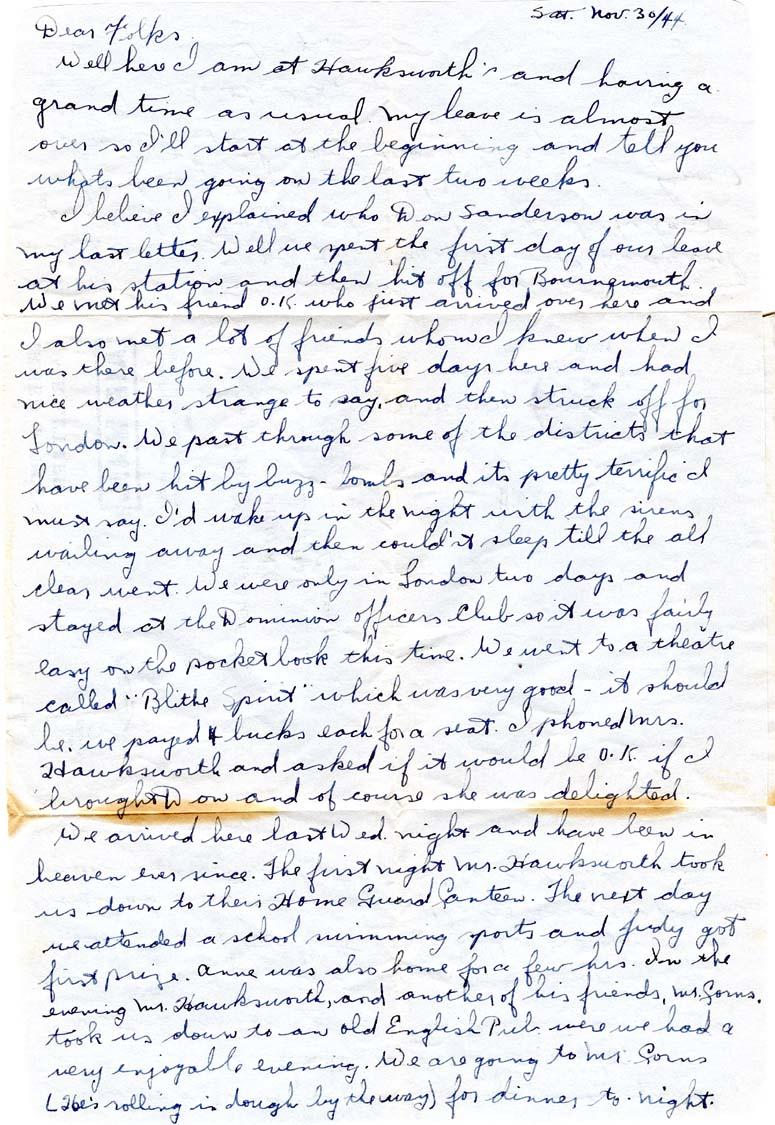 Sat. Nov. 30/44
Dear Folks.
Well here I am at Hawksworth's and having a
grand time as usual. My leave is almost
over so I'll start at the beginning and tell you
whats been going on the last two weeks.
I believe I explained who Don Sanderson was in
my last letter. Well we spent the first day of our leave
at his station and then hit off for Bournemouth.
We met his friend O.K. who just arrived over here and
I also met a lot of friends whom I knew when I
was there before. We spent five days here and had
nice weather strange to say, and then struck off for
London. We past through some of the districts that
have been hit by buzz-bombs and its pretty terrific I
must say. I'd wake up in the night with the sirens
wailing away and then could'nt sleep till the all
clear went. We were only in London two days and
stayed at the Dominion officers Club so it was fairly
easy on the pocketbook this time. We went to a theatre
called "Blithe Spirit" which was very good - it should
be. we payed 4 bucks each for a seat. I phoned Mrs.
Hawksworth and asked if it would be O.K. if I
brought Don and of course she was delighted.
We arrived here last Wed. night and have been in
heaven ever since. The first night Mr. Hawksworth took
us down to their Home Guard Canteen. The next day
we attended a school swimming sports and Judy got
first prize. Anne was also home for a few hrs. In the
evening Mr. Hawksworth, and another of his friends, Mr. Gorns.
took us down to an old English Pub. were we had a
very enjoyable evening. We are going to Mr. Gorns
(He's rolling in dough by the way) for dinner to-night.